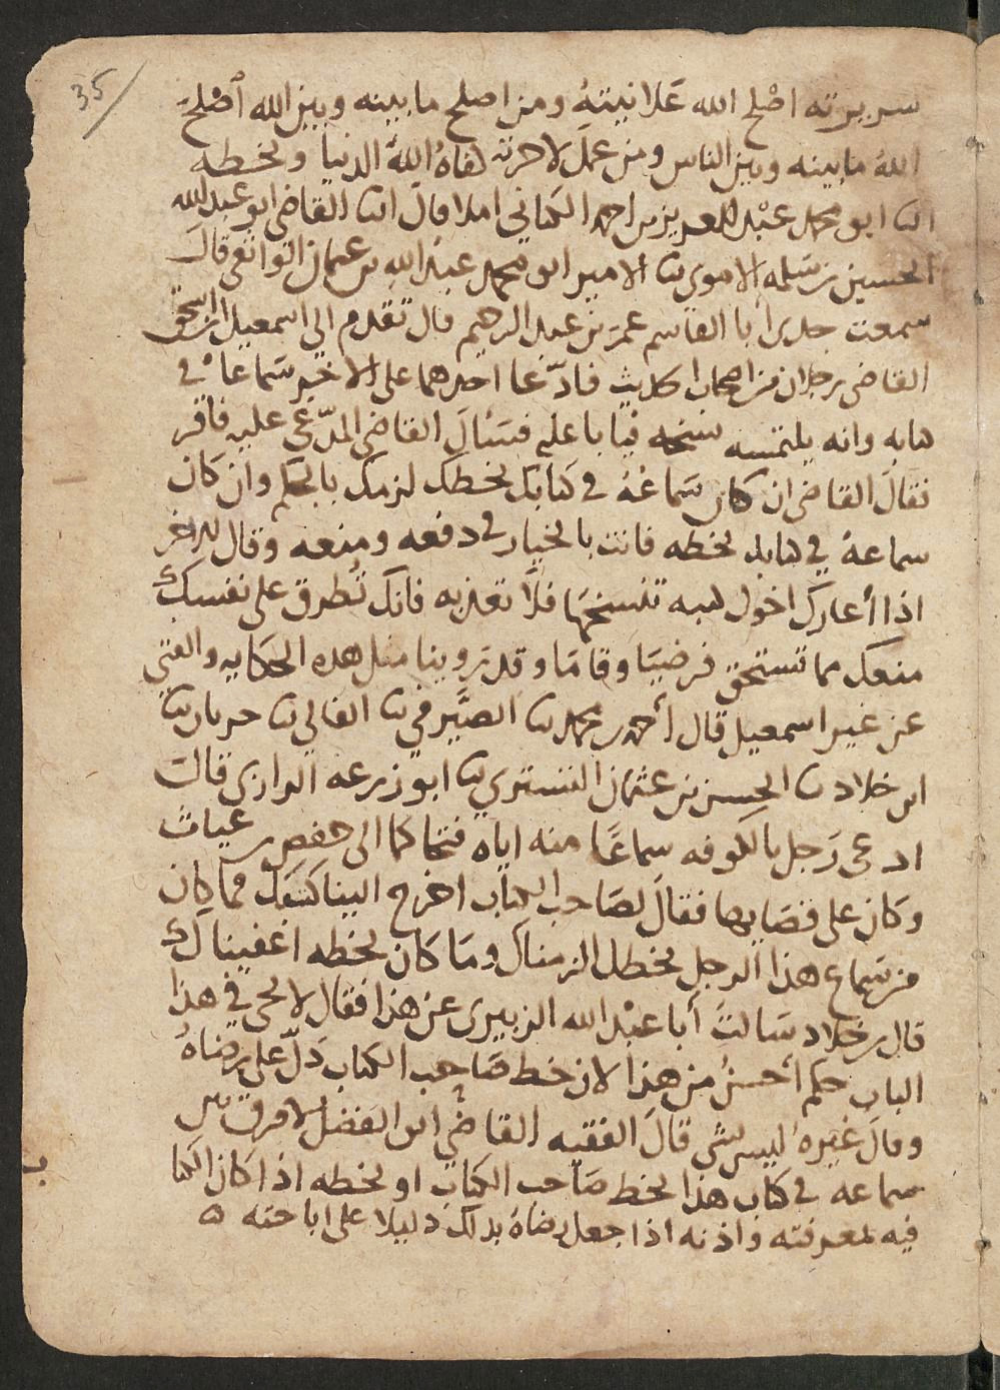 35
سريرته اصْلح الله عَلانيتهُ ومن اصلح ما بينه وبين الله اصْلح
اللهُ ما بينه وبين الناس ومن عمل لاخرته كفاهُ اللهُ الدنيا وبخطه
انا ابو محمد عبْد العزيز بن احمد الكتاني املا قال انا القاضي ابو عبد الله
الحسين بن سَلمه الاموى نا الامير ابو محمد عبد الله بن عثمان الواثقي قال
سمعت جدى أبا القاسم عمر بن عبد الرحيم قال تقدم الى اسمعيل بن اسحق
القاضي رجلان من اصحاب الحديث فادّعا احدهما على الاخر سَماعا في
كتابه وانه يلتمسه نسخه فيابا عليه فسَئالَ القاضي المدّعي عليه فاقر
فقال القاضي ان كان سَماعهُ في كتابك بخطك لزمك بالحكم وان كان
سماعهُ في كتابك بخطه فانت بالخيار في دفعه ومنعه وقال للاخر
اذا أعارك اخوك كتبه تنسخها فلا تعذبه فانك تُطرق على نفسك
منعك مما تستحق فرضيَا وقامَا وقد روينا مثل هذه الحكايه والفتي
عن غير اسمعيل قال أحمد بن محمد نا الصَّيرفي نا الفالي نا حربان نا
ابن خلاد نا الحسن بن عثمان التستري نا ابو زرعه الرازي قال
ادعى رَجل بالكوفه سماعًا منه اياه فتحاكما الى حفص بن غياث
وكان على قضايها فقال لصَاحب الكتاب اخرج الينا كتبك فما كان
من سماع هذا الرجل بخطك الزمناك وما كان بخطه اعفيناك
قال بن خلاد سَالت أبا عبْد الله الزبيرى عن هذا فقال لا يجي في هذا
الباب حكم أحسنُ من هذا لان خط صَاحب الكتاب دَلّ على رضاهُ
وقال غيره ليس بشى قالَ الفقيه القاضي ابو الفضل لا فرق بين
سماعه في كتاب هذا بخط صَاحب الكتاب او بخطه اذا كان الكتا
ب
فيه بمعرفته واذنه اذا جعل رضاهُ بذلك دليلا على اباحته ه